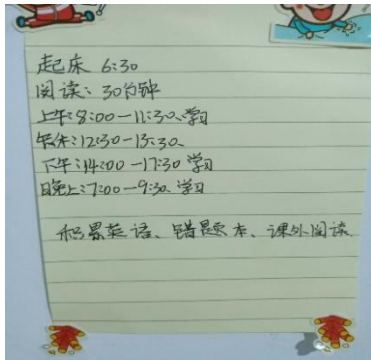 起床 6:30
阅读: 30分钟
上午: 8:00-11:30、学习
午休: 12:30-13:30、
下午: 14:00-17:30 学习
晚上: 7:00-9:30、学习
积累英语、错题本、课外阅读、